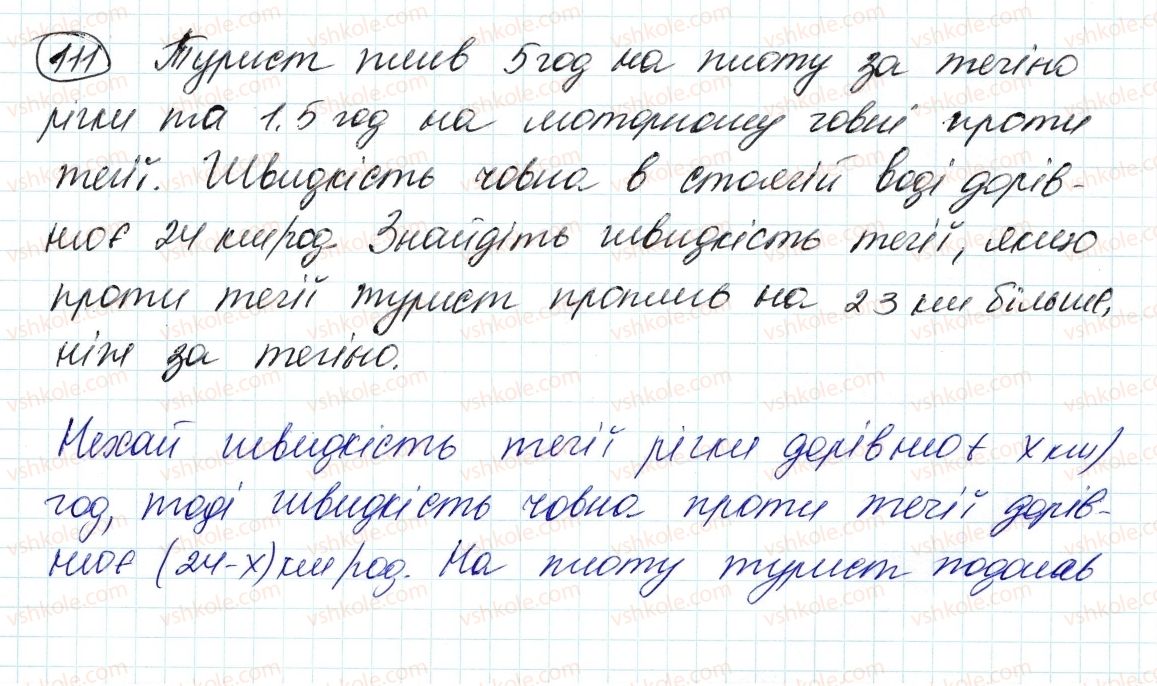 111 Турист плив 5 год на плоту за течією
річки та 1.5 год на моторному човні проти
течії. Швидкість човна в стоячій воді дорів-
нює 24 км/год Знайдіть швидкість течії, якщо
проти течії турист проплив на 23 км більше,
ніж за течією.
Нехай швидкість течії річки дорівнює х км/
год, тоді швидкість човна проти течії дорів-
нює (24-х) км/год. На плоту турист подолав